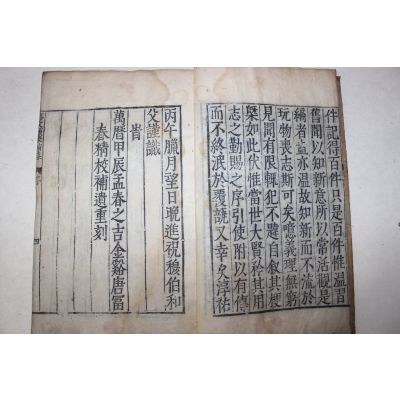 件記得百件只是百件惟溫習
舊聞以知新意所以常活觀是
編者盍亦溫故知新而不流於
玩物喪志斯可矣噫義理無窮
見聞有限輒犯不韙自叙其梗
槩如此伏惟當世大賢矜其用
志之勤賜之序引使附以有傳
而不終泯於覆瓿又幸矣淳祐
丙午臘月望日晚進祝穆伯和
父謹識
旹
萬曆甲辰孟春之吉金谿唐冨
春精校補遺重刻
四